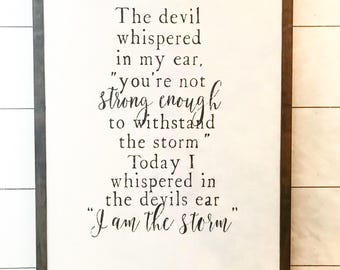 The devil
whispered
in my ear,
"you're not
strong enough
to withstand
the storm"
Today I
whispered in
the devils ear
"I am the storm"